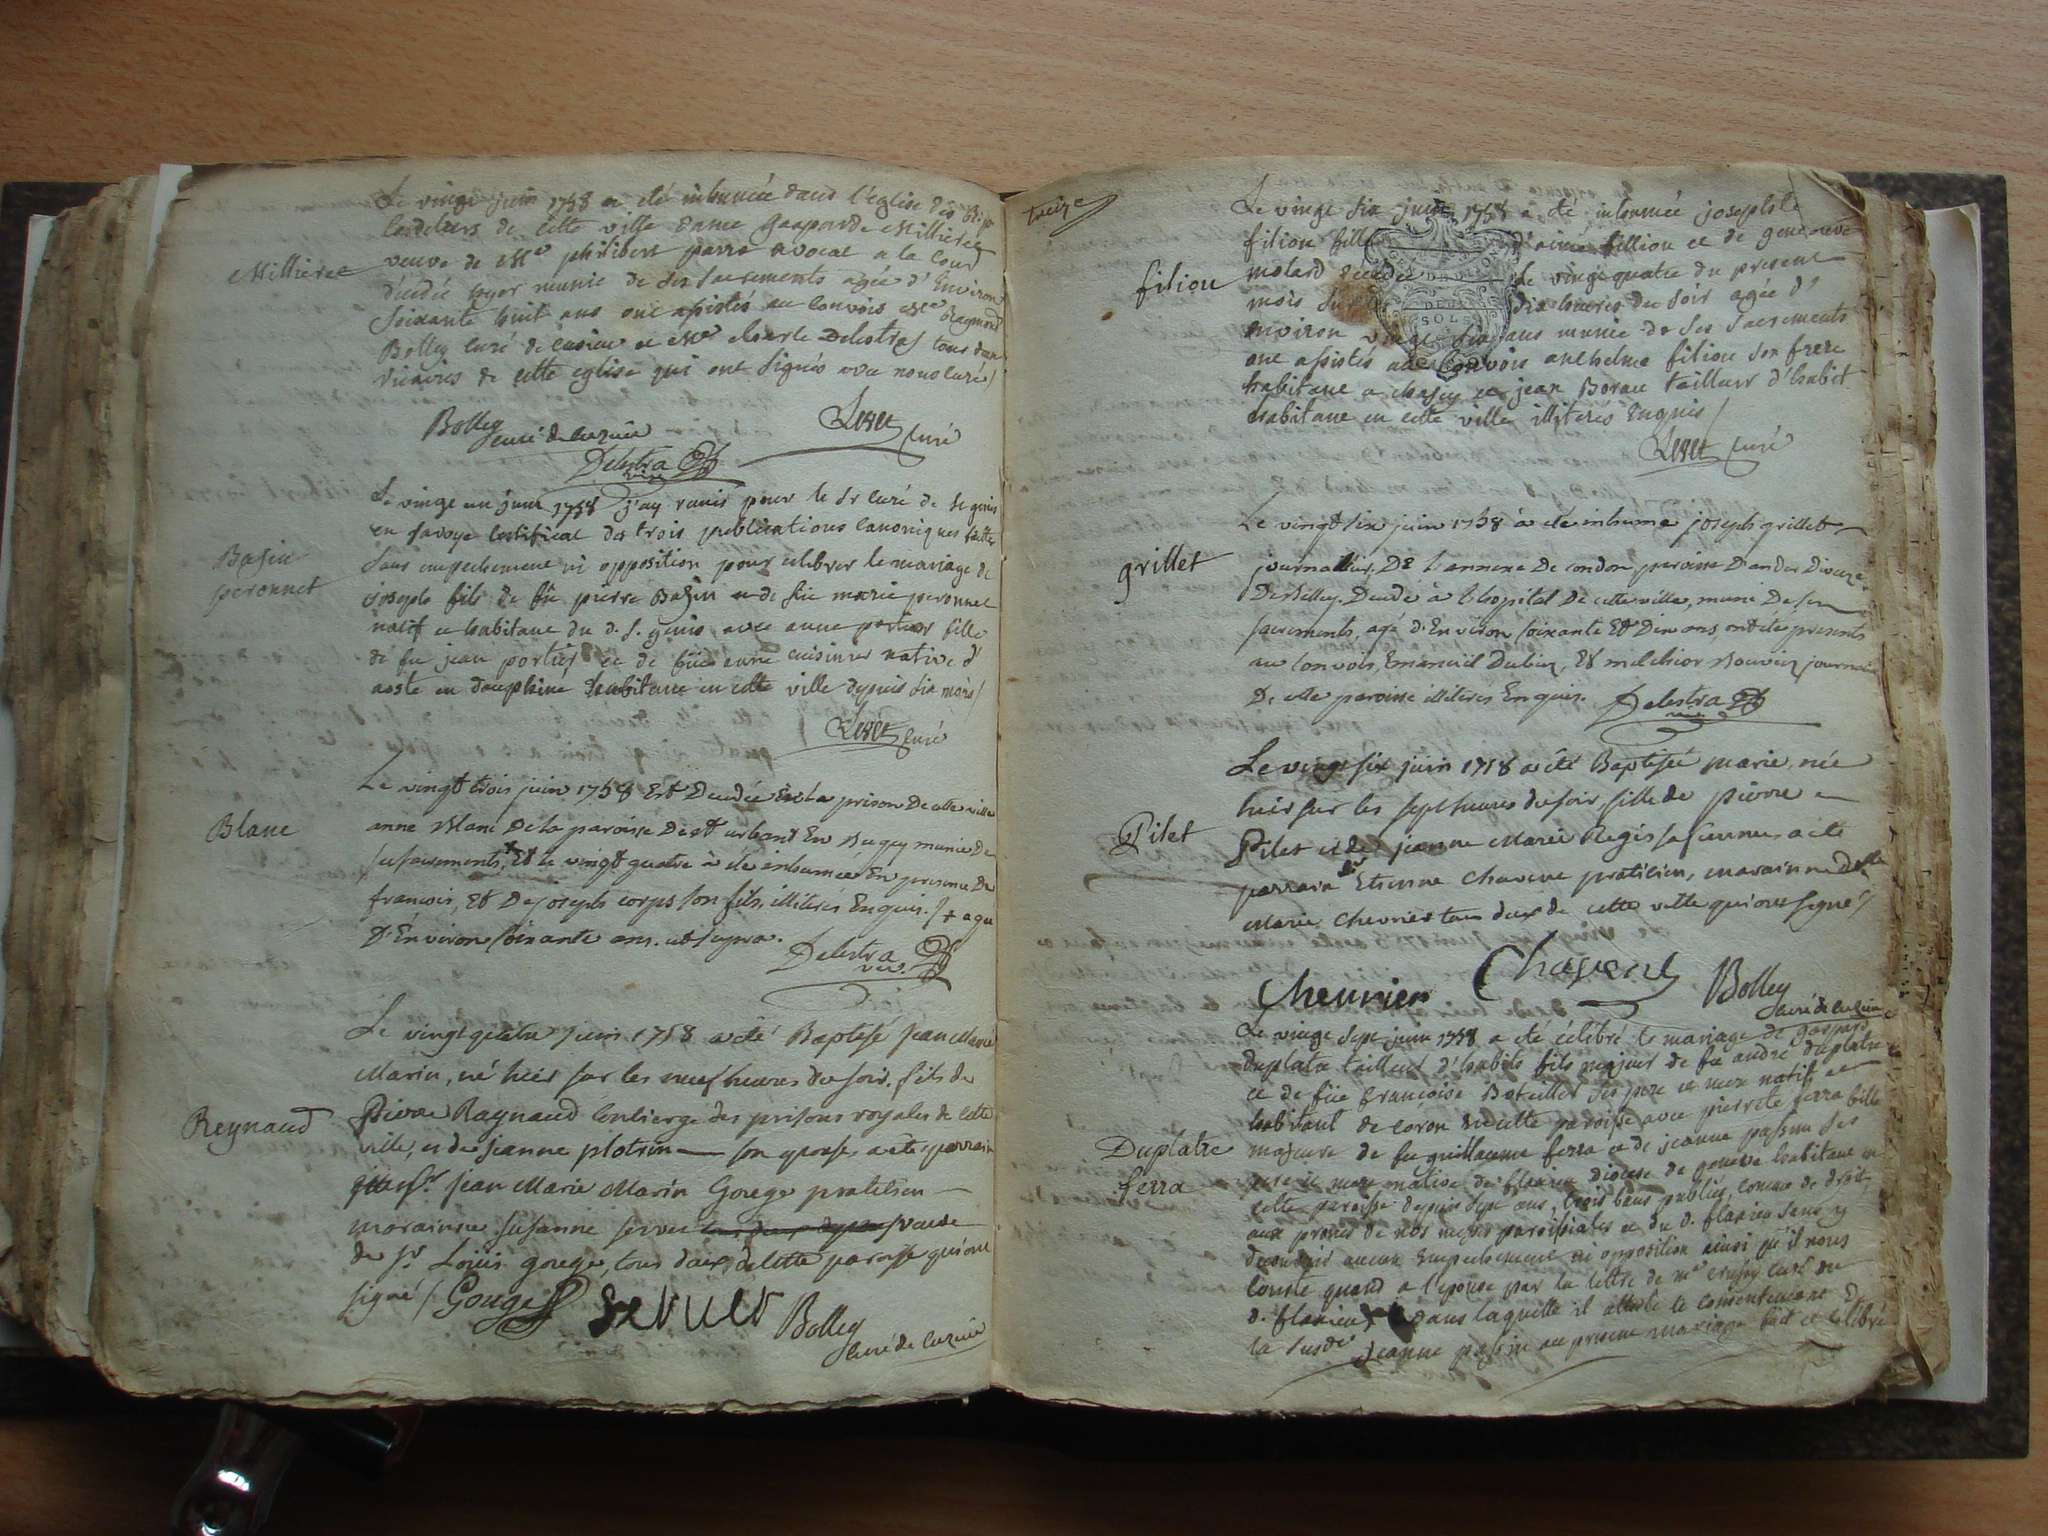 Millieret
Le vingt juin 1758 a été inhumée dans l'église des
Cordeliers de cette ville dame gasparde Millieret
veuve de Me philibert parra avocat a la Cour
décédée hyer munie de ses sacrements agée d'Environ
soixante huit ans ont assistés au Convois Mre Raymond
Bolley curé de cuzieu et Mre charle Delestra tous deux
vicaires de cette eglise qui ont signés avec nous curé /
Bolley curé de cuzieu
Levet curé
Delestra vic.
Bazin
peronnet
Le vingt un juin 1758 j'ay remis pour le Sr curé de St genis
en savoye Certificat des trois publications canoniques faittes
sans empechement ni opposition pour celebrer le mariage de
joseph fils de fû pierre Bazin et de füe marie peronnet
natif et habitant du d. S. genis avec anne portier fille
de fu jean portier et de füe anne cuisinier native d'
aoste en dauphiné habitante en cette ville depuis six mois /
Levet curé
Blanc
Le vingt trois juin 1758 Est Decedée En la prison De cette ville
anne Blanc De la paroisse De St urbant En Bugey munie De
ses sacrements, + Et le vingt quatre à été inhumée En presence De
francois, Et De joseph corps son fils, illiterés Enquis. / + agée
D'Environ soixante ans. ut supra.
Delestra vic.
Reynaud
Le vingt quatre juin 1758 a été Baptisé Jean Marie
Marin, né hier sur les neuf heures du soir, fils de
Pierre Raynaud Concierge des prisons royales de cette
ville, et de jeanne plotrin son epouse, a eté parrain
Sr Jean Marie Marin Gouge praticien
marainne susanne servet veuve
de Sr Louis gouge, tous deux de cette paroisse qui ont
signé / Gouge servet Bolley
curé de cuzieu
treize
filiou
Le vingt six juin 1758 a été inhumée josephte
filiou fille d'aimé filliou et de genevieve
molard decedée le vingt quatre du present
mois sur les dix heures du soir agée d'
environ vingt six ans munie de ses sacrements
ont assistés au Convois anthelme filiou son frere
habitant a chasey et jean Borau tailleur d'habit
habitant en cette ville illiterés Enquis /
DEUX
SOLS
Levet curé
grillet
Le vingt six juin 1758 à eté inhumé joseph grillet
journallier, DE L'annexe De condon paroisse D'andor Dioceze
De Belley. Decedé à L'hopital De cette ville, muni De ses
sacrements, agé d'Environ soixante Et Deux ans, ont eté presents
au convois, Emanuël Dubiez, Et melchior Bouvier journal
De cette paroisse illiterés Enquis.
Delestra vic.
Pilet
Le vingt six juin 1758 a été Baptisée Marie, née
hier sur les sept heures du soir, fille de Pierre
Pilet et de jeanne Marie Regis sa femme, a été
parrain Sr Etienne Chavent praticien, marainne Dlle
Marie Chevrier tous deux de cette ville qui ont signé /
Chevrier Chavent Bolley
curé de cuzieu
Duplatre
ferra
Le vingt sept juin 1758 a été célébré le mariage de gaspard
duplatre tailleur d'habits fils majeur de fu andré duplatre
et de füe françoise Boteiller ses pere et mere natif et
habitant de Coron de cette paroisse avec pierrete ferra fille
majeure de fu guillaume ferra et de jeanne passin ses
pere et mere native de flaxieu diocese de geneve habitante en
cette paroisse depuis sept ans, trois bans publiés comme de droit
aux prones de nos messes paroissiales et du d. flaxieu sans y
decouvrir aucun Empechement ni opposition ainsi qu'il nous
conste quand a l'epouse par la lettre de Mre crussy curé du
d. flaxieu dans laquelle il atteste le consentement de
la susde jeanne passin au present mariage fait et celebré